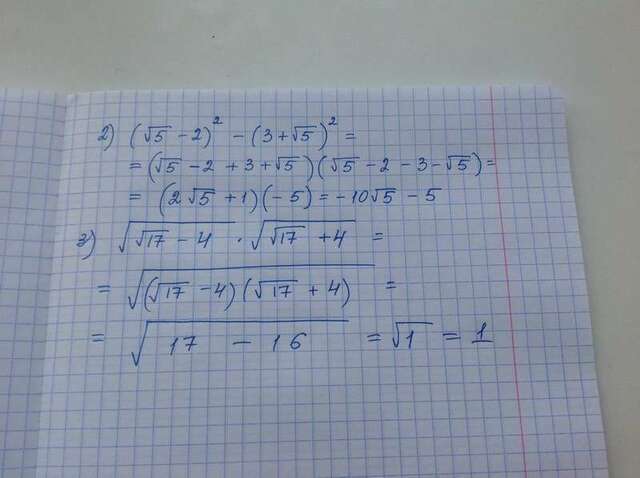 2) (√5 - 2)² - (3 + √5)² =
= (√5 - 2 + 3 + √5)(√5 - 2 - 3 - √5) =
= (2√5 + 1)(-5) = -10√5 - 5
3) √(√17 - 4) · √(√17 + 4) =
= √((√17 - 4)(√17 + 4)) =
= √(17 - 16) = √1 = 1